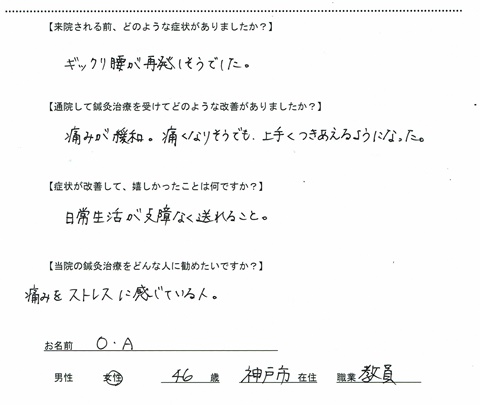 【来院される前、どのような症状がありましたか？】
ギックリ腰が再発しそうでした。
【通院して鍼灸治療を受けてどのような改善がありましたか？】
痛みが緩和。痛くなりそうでも、上手くつきあえるようになった。
【症状が改善して、嬉しかったことは何ですか？】
日常生活が支障なく送れること。
【当院の鍼灸治療をどんな人に勧めたいですか？】
痛みをストレスに感じている人。
お名前 O・A
男性 女性 46 歳 神戸市 在住 職業 教員